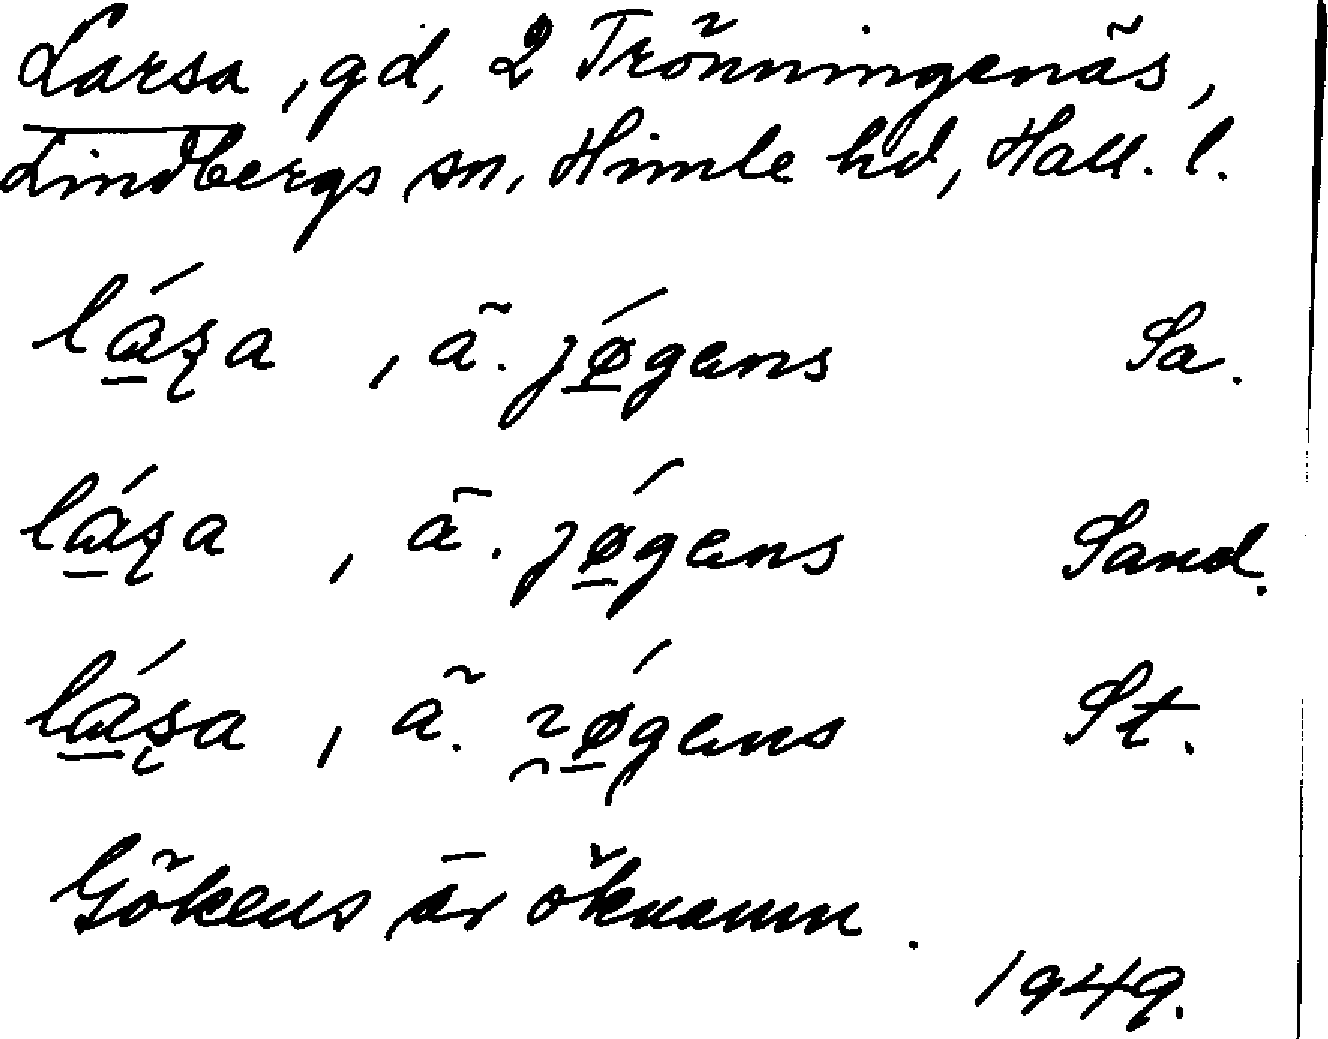 Larsa, gd, 2 Trönningenäs,
Lindbergs sn, Himle hd, Hall. l.
lása, ä. jǿgens Sa.
lása, ä. jǿgens Sand.
lása, ä. jǿgens St.
Gökens är öknamn.
1949.